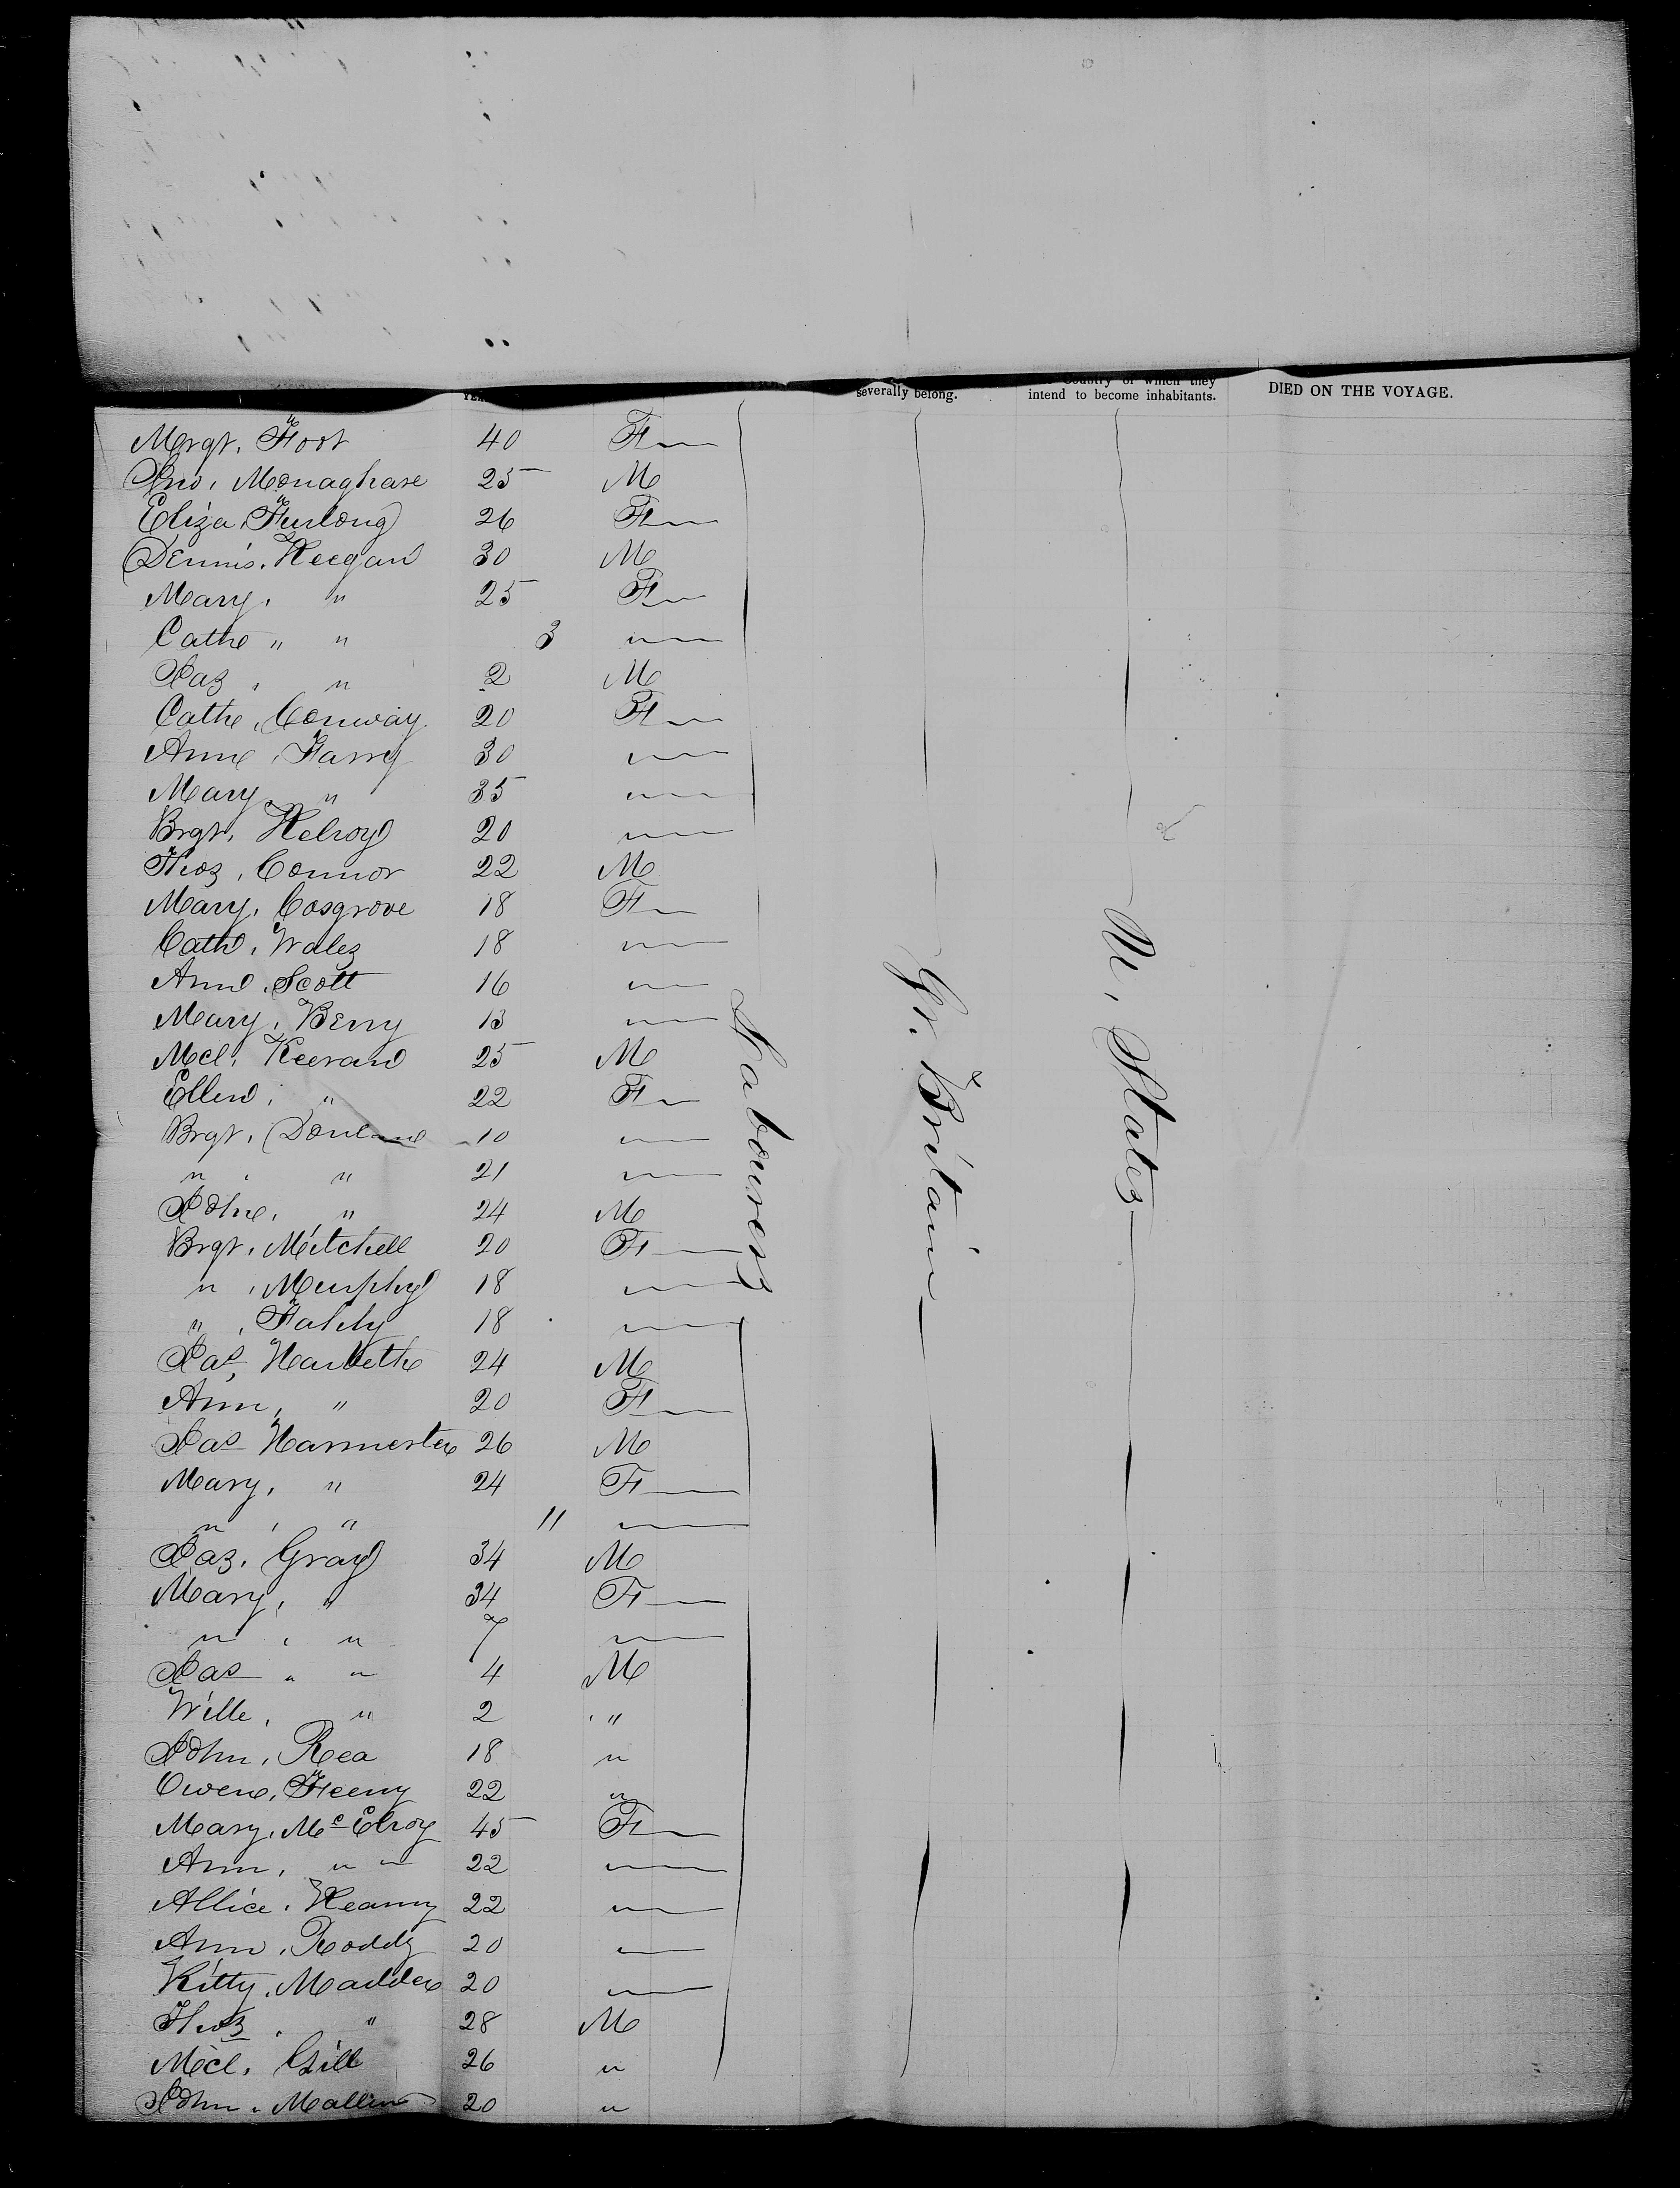 severally belong.
Country of which they
intend to become inhabitants.
DIED ON THE VOYAGE.
Mrgt. Foot 40 F
Jno. Monaghan 25 M
Eliza Furlong 26 F
Dennis. Keegan 30 M
Mary. " 25 F
Cathe " " 3 "
Jas , " 2 M
Cathe. Conway 20 F
Anne. Farry 30 "
Mary, " 35 "
Brgt. Kelroy 20 "
Thos. Connor 22 M
Mary. Cosgrove 18 F
Cath. Wales 18 "
Ann. Scott 16 "
Mary. Berry 13 "
Mcl. Keevan 25 M
Ellen. " 22 F
Brgt. 10 "
" . " 21 "
John. " 24 M
Brgt. Mitchell 20 F
" . Murphy 18 "
" . Fahly 18 "
Jas, Harbeth 24 M
Ann, " 20 F
Jas 26 M
Mary, " 24 F
" , " 11 "
Jas. Gray 34 M
Mary, " 34 F
" , " 7 "
Jas " " 4 M
Wille, " 2 "
John, Rea 18 "
Owen. Feeny 22 "
Mary. Mc Elroy 45 F
Ann, " " 22 "
Allice. Keanny 22 "
Ann. Roddy 20 "
Kitty. Madden 20 "
Thos . " 28 M
Mcl. Gill 26 "
John. Mallin 20 "
Labourers
Gr. Britain
U. States